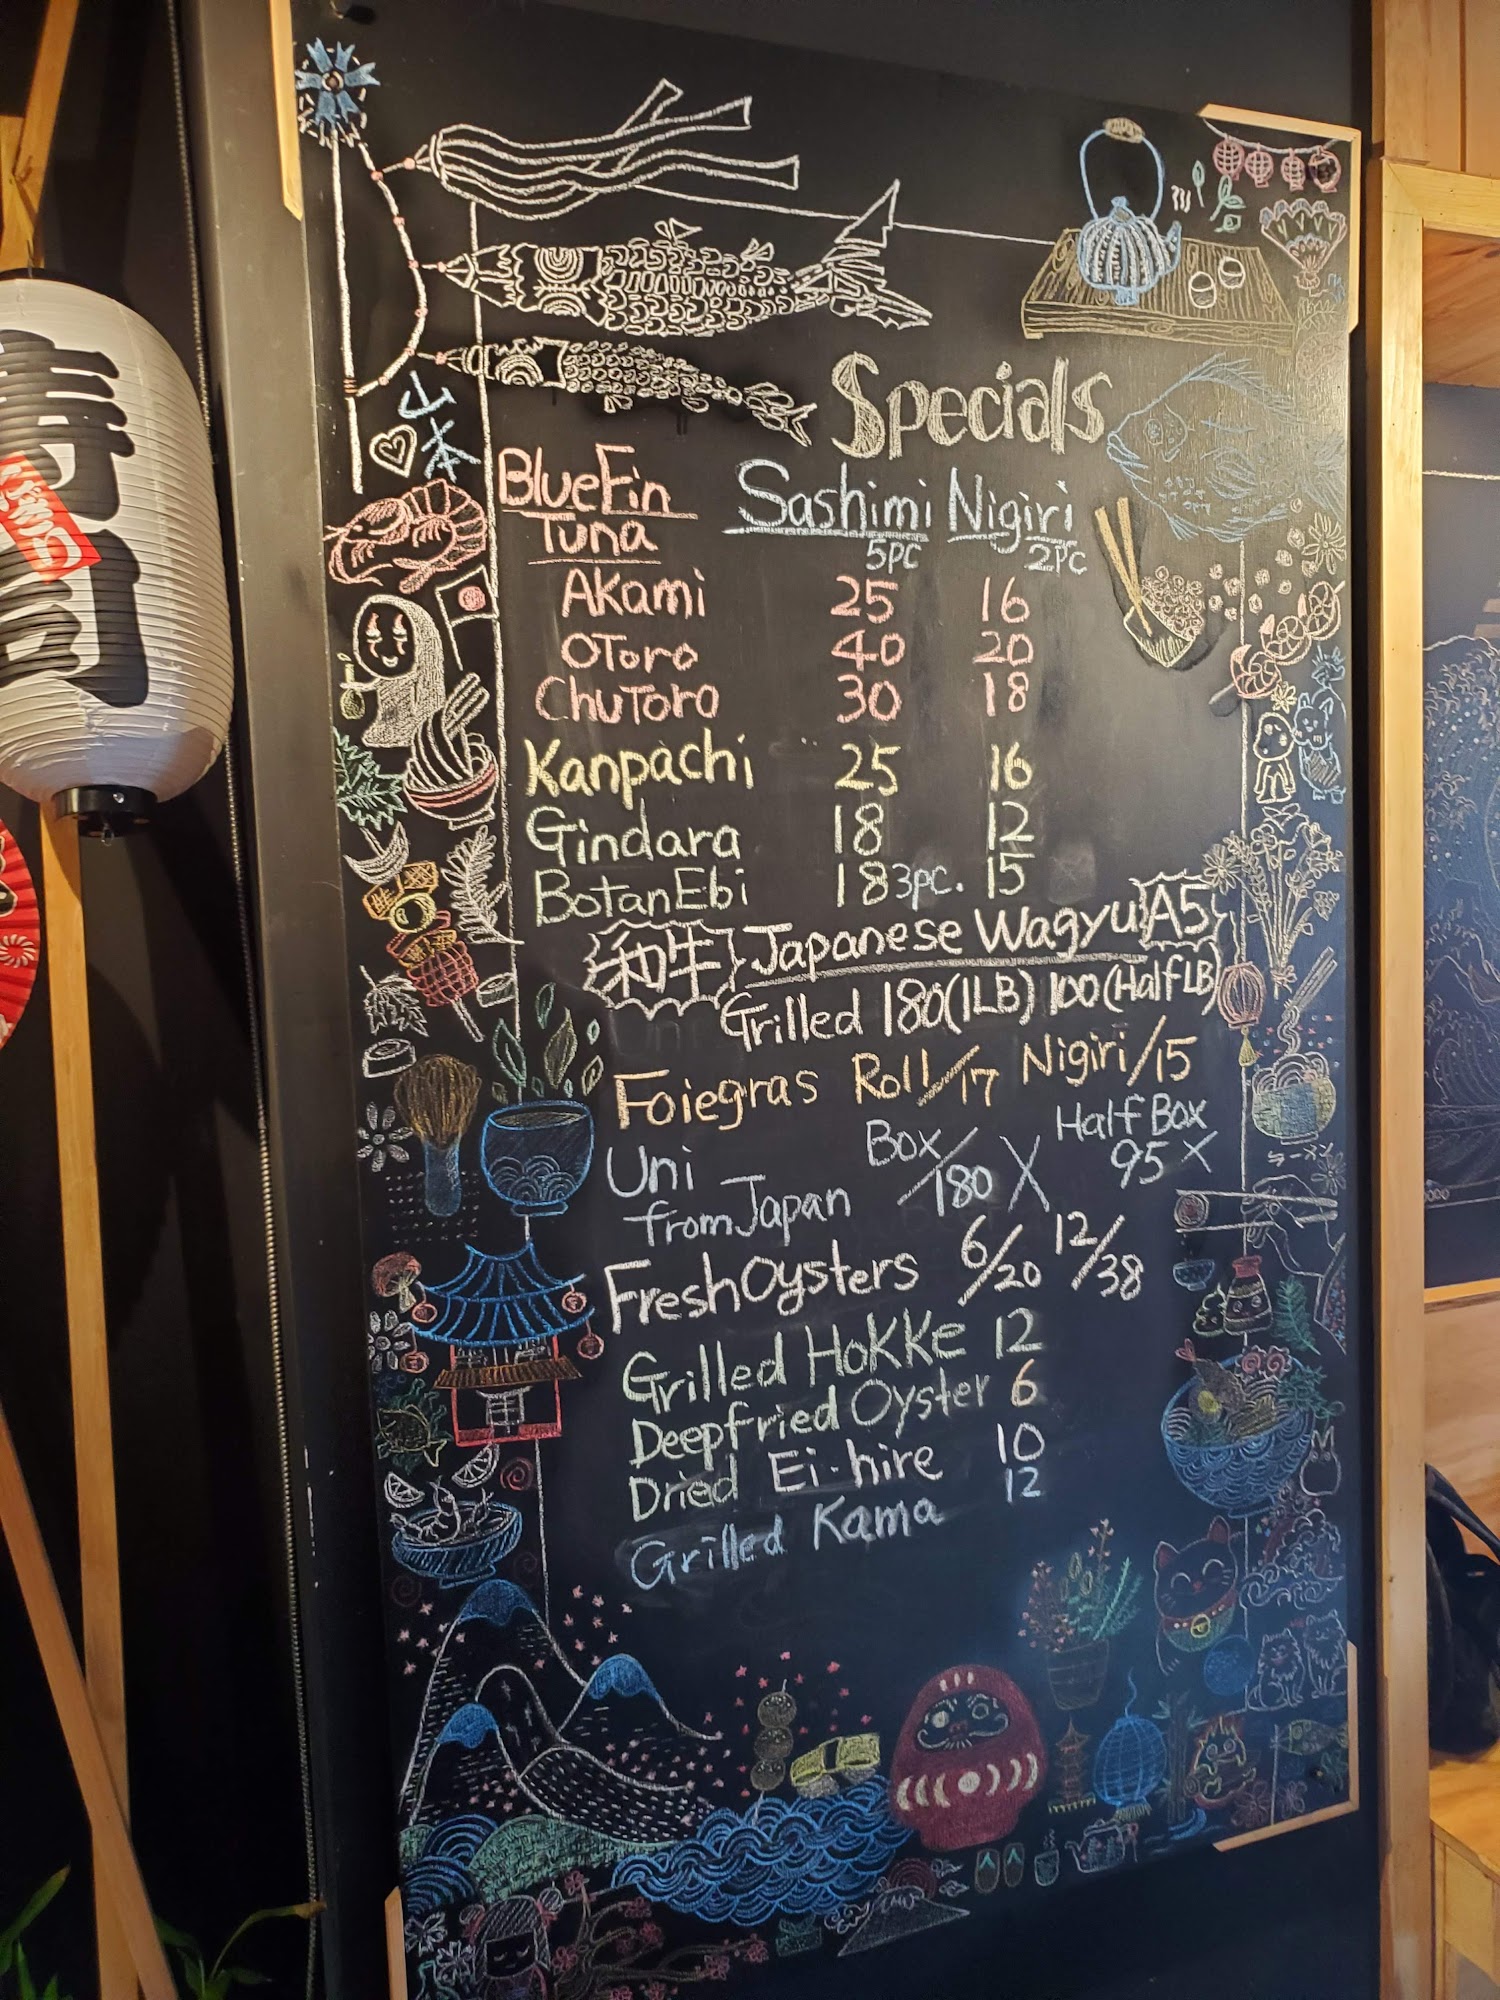 寿司
山本
Specials
BlueFin Tuna
Sashimi Nigiri
5pc 2pc
Akami 25 16
OToro 40 20
ChuToro 30 18
Kanpachi 25 16
Gindara 18 12
BotanEbi 18 3pc. 15
和牛 Japanese Wagyu A5
Grilled 180(1LB) 100(HalfLB)
Foiegras Roll/17 Nigiri/15
Uni Box Half Box
from Japan /180 X 95 X
Fresh Oysters 6/20 12/38
Grilled HoKKe 12
Deepfried Oyster 6
Dried Ei-hire 10
Grilled Kama 12